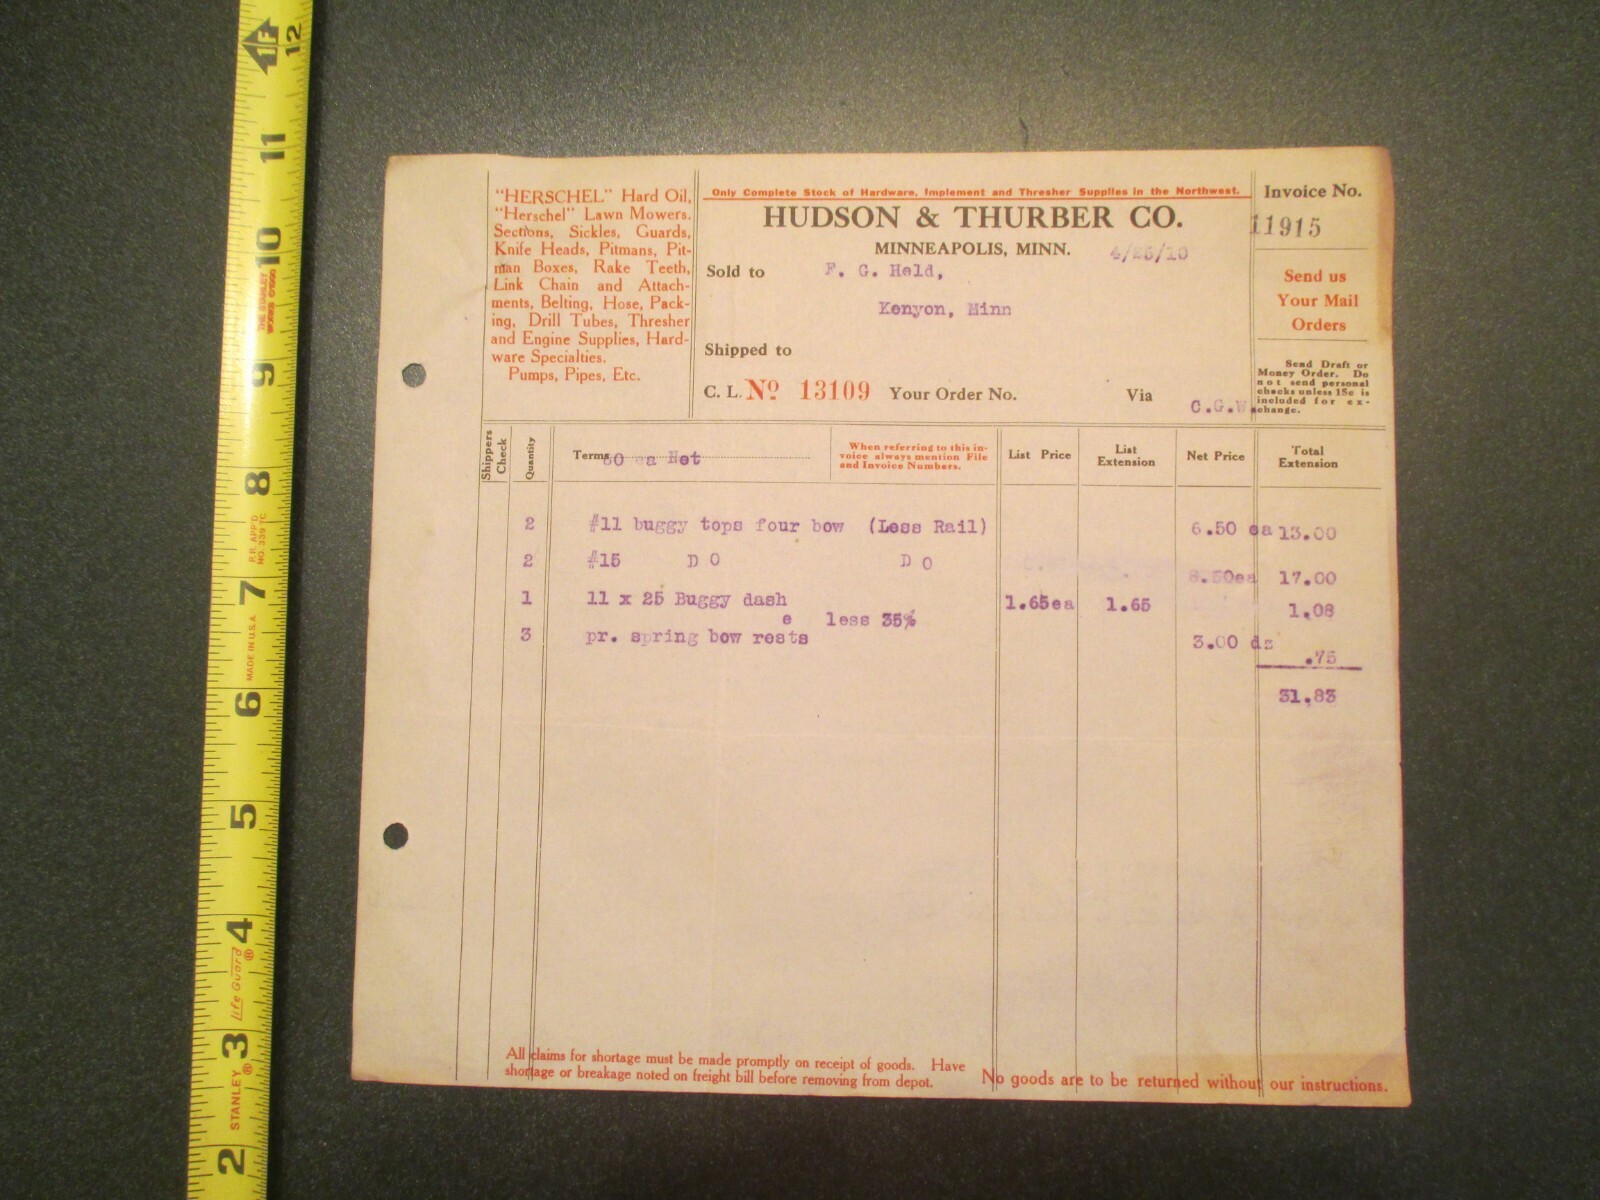 "HERSCHEL" Hard Oil,
"Herschel" Lawn Mowers.
Sections, Sickles, Guards,
Knife Heads, Pitmans, Pit-
man Boxes, Rake Teeth,
Link Chain and Attach-
ments, Belting, Hose, Pack-
ing, Drill Tubes, Thresher
and Engine Supplies, Hard-
ware Specialties.
Pumps, Pipes, Etc.
Only Complete Stock of Hardware, Implement and Thresher Supplies in the Northwest.
HUDSON & THURBER CO.
MINNEAPOLIS, MINN. 4/25/10
Sold to F. G. Held,
Kenyon, Minn
Shipped to
C. L. Nº 13109 Your Order No. Via C.G.W.
Invoice No.
11915
Send us
Your Mail
Orders
Send Draft or
Money Order. Do
not send personal
checks unless 15c is
included for ex-
change.
Shippers Check
Quantity
Terms 60 Net
When referring to this in-
voice always mention File
and Invoice Numbers.
List Price
List Extension
Net Price
Total Extension
2 #11 buggy tops four bow (Less Rail) 6.50 ea 13.00
2 #15 DO DO 8.50ea 17.00
1 11 x 25 Buggy dash 1.65ea 1.65 1.08
e less 35%
3 pr. spring bow rests 3.00 dz .75
31.83
All claims for shortage must be made promptly on receipt of goods. Have
shortage or breakage noted on freight bill before removing from depot.
No goods are to be returned without our instructions.
1F
12
11
10
THE STANLEY WORKS ©1990
9
8
P.R. APP'D NO. 339 TC
7
MADE IN U.S.A.
6
5
4
Life Guard®
3
STANLEY®
2